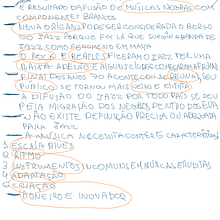 E RESULTADO DA FUSÃO DE MÚSICAS NEGRAS COM
COMPONENTES BRANCOS
NOVA ORLEANS PODE SER CONSIDERADA O BERÇO
DO JAZZ PORQUE FOI LÁ QUE SURGIU A BANDA DE
JAZZ COMO FENÔMENO EM MASSA
O ROCK E BEATLES FIZERAM O JAZZ TER UMA
BAIXA ADESÃO E ALGUNS CLUBES
FINAL DOS ANOS 70 ACONTECE SEU
PUBLICO SE TORNOU MAIS VELHO E ELITISTA
A DIFUSÃO DO JAZZ POR TODO PAÍS SE DEU
PELA MIGRAÇÃO DOS NEGROS DENTRO DOS EUA
NÃO EXISTE DEFINIÇÃO PRECISA OU ADEQUADA
PARA JAZZ
A MUSICA NECESSITA CONTER 5 CARACTERISTICAS
1) ESCALA BLUES
2) RITMO
3) INSTRUMENTOS INCOMUNS EM MÚSICA ERUDITAS
4) ADAPTAÇÃO
5) CRIAÇÃO
PIONEIRO E INOVADOR